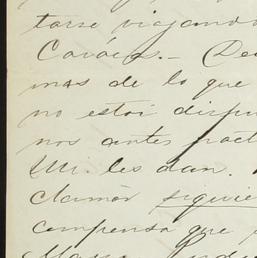 tarse viajando
Carács.- (De
mas de lo que
no estoi dispu
nos antes pact
Um. les dan.
clamor siguie
compensa que